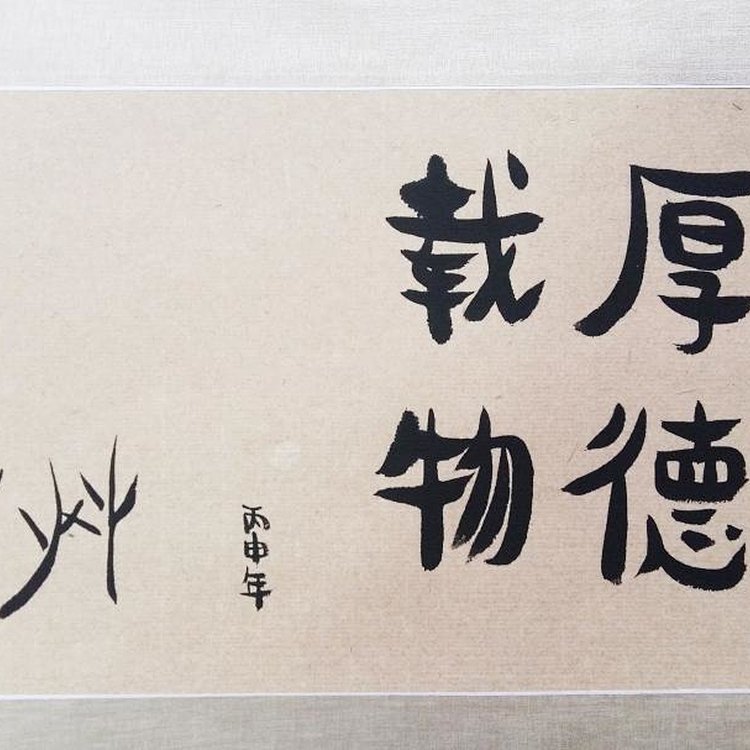 厚德
载物
丙申年